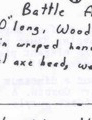 Battle A
0" long, Wood
n wraped han
l axe head, we